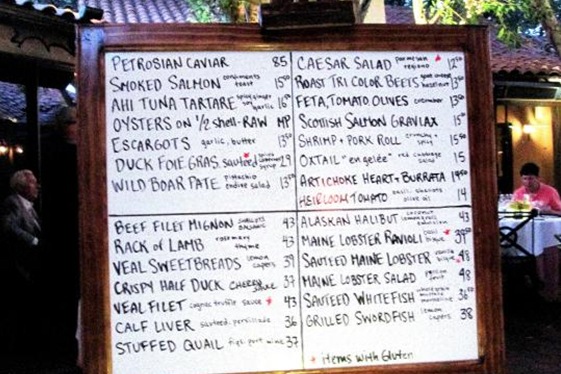 PETROSIAN CAVIAR 85
SMOKED SALMON condiments toast 15⁵⁰
AHI TUNA TARTARE ginger garlic 16⁵⁰
OYSTERS ON 1/2 shell-RAW MP
ESCARGOTS garlic, butter 13⁵⁰
DUCK FOIE GRAS sauteed 29
WILD BOAR PATE pistachio endive salad 13⁵⁰
CAESAR SALAD parmesan reggiano 12⁵⁰
ROAST TRI COLOR BEETS goat cheese hazelnut 13⁵⁰
FETA, TOMATO OLIVES cucumber 13⁵⁰
SCOTTISH SALMON GRAVLAX 15⁵⁰
SHRIMP + PORK ROLL crunchy + spicy 15⁵⁰
OXTAIL "en gelée" red cabbage salad 15
ARTICHOKE HEART + BURRATA 19⁵⁰
HEIRLOOM TOMATO basil, shallots olive oil 14
BEEF FILET MIGNON shallots balsamic 43
RACK OF LAMB rosemary thyme 43
VEAL SWEETBREADS lemon capers 39
CRISPY HALF DUCK CHERRY sauce 37
VEAL FILET cognac truffle sauce * 43
CALF LIVER sauteed, persillade 36
STUFFED QUAIL figs, port wine 37
ALASKAN HALIBUT coconut lemongrass 43
MAINE LOBSTER RAVIOLI basil bisque 39⁵⁰
SAUTEED MAINE LOBSTER vanilla bisque 48
MAINE LOBSTER SALAD passion fruit 48
SAUTEED WHITEFISH whole grain mustard 36⁵⁰
GRILLED SWORDFISH lemon capers 38
* items with Gluten